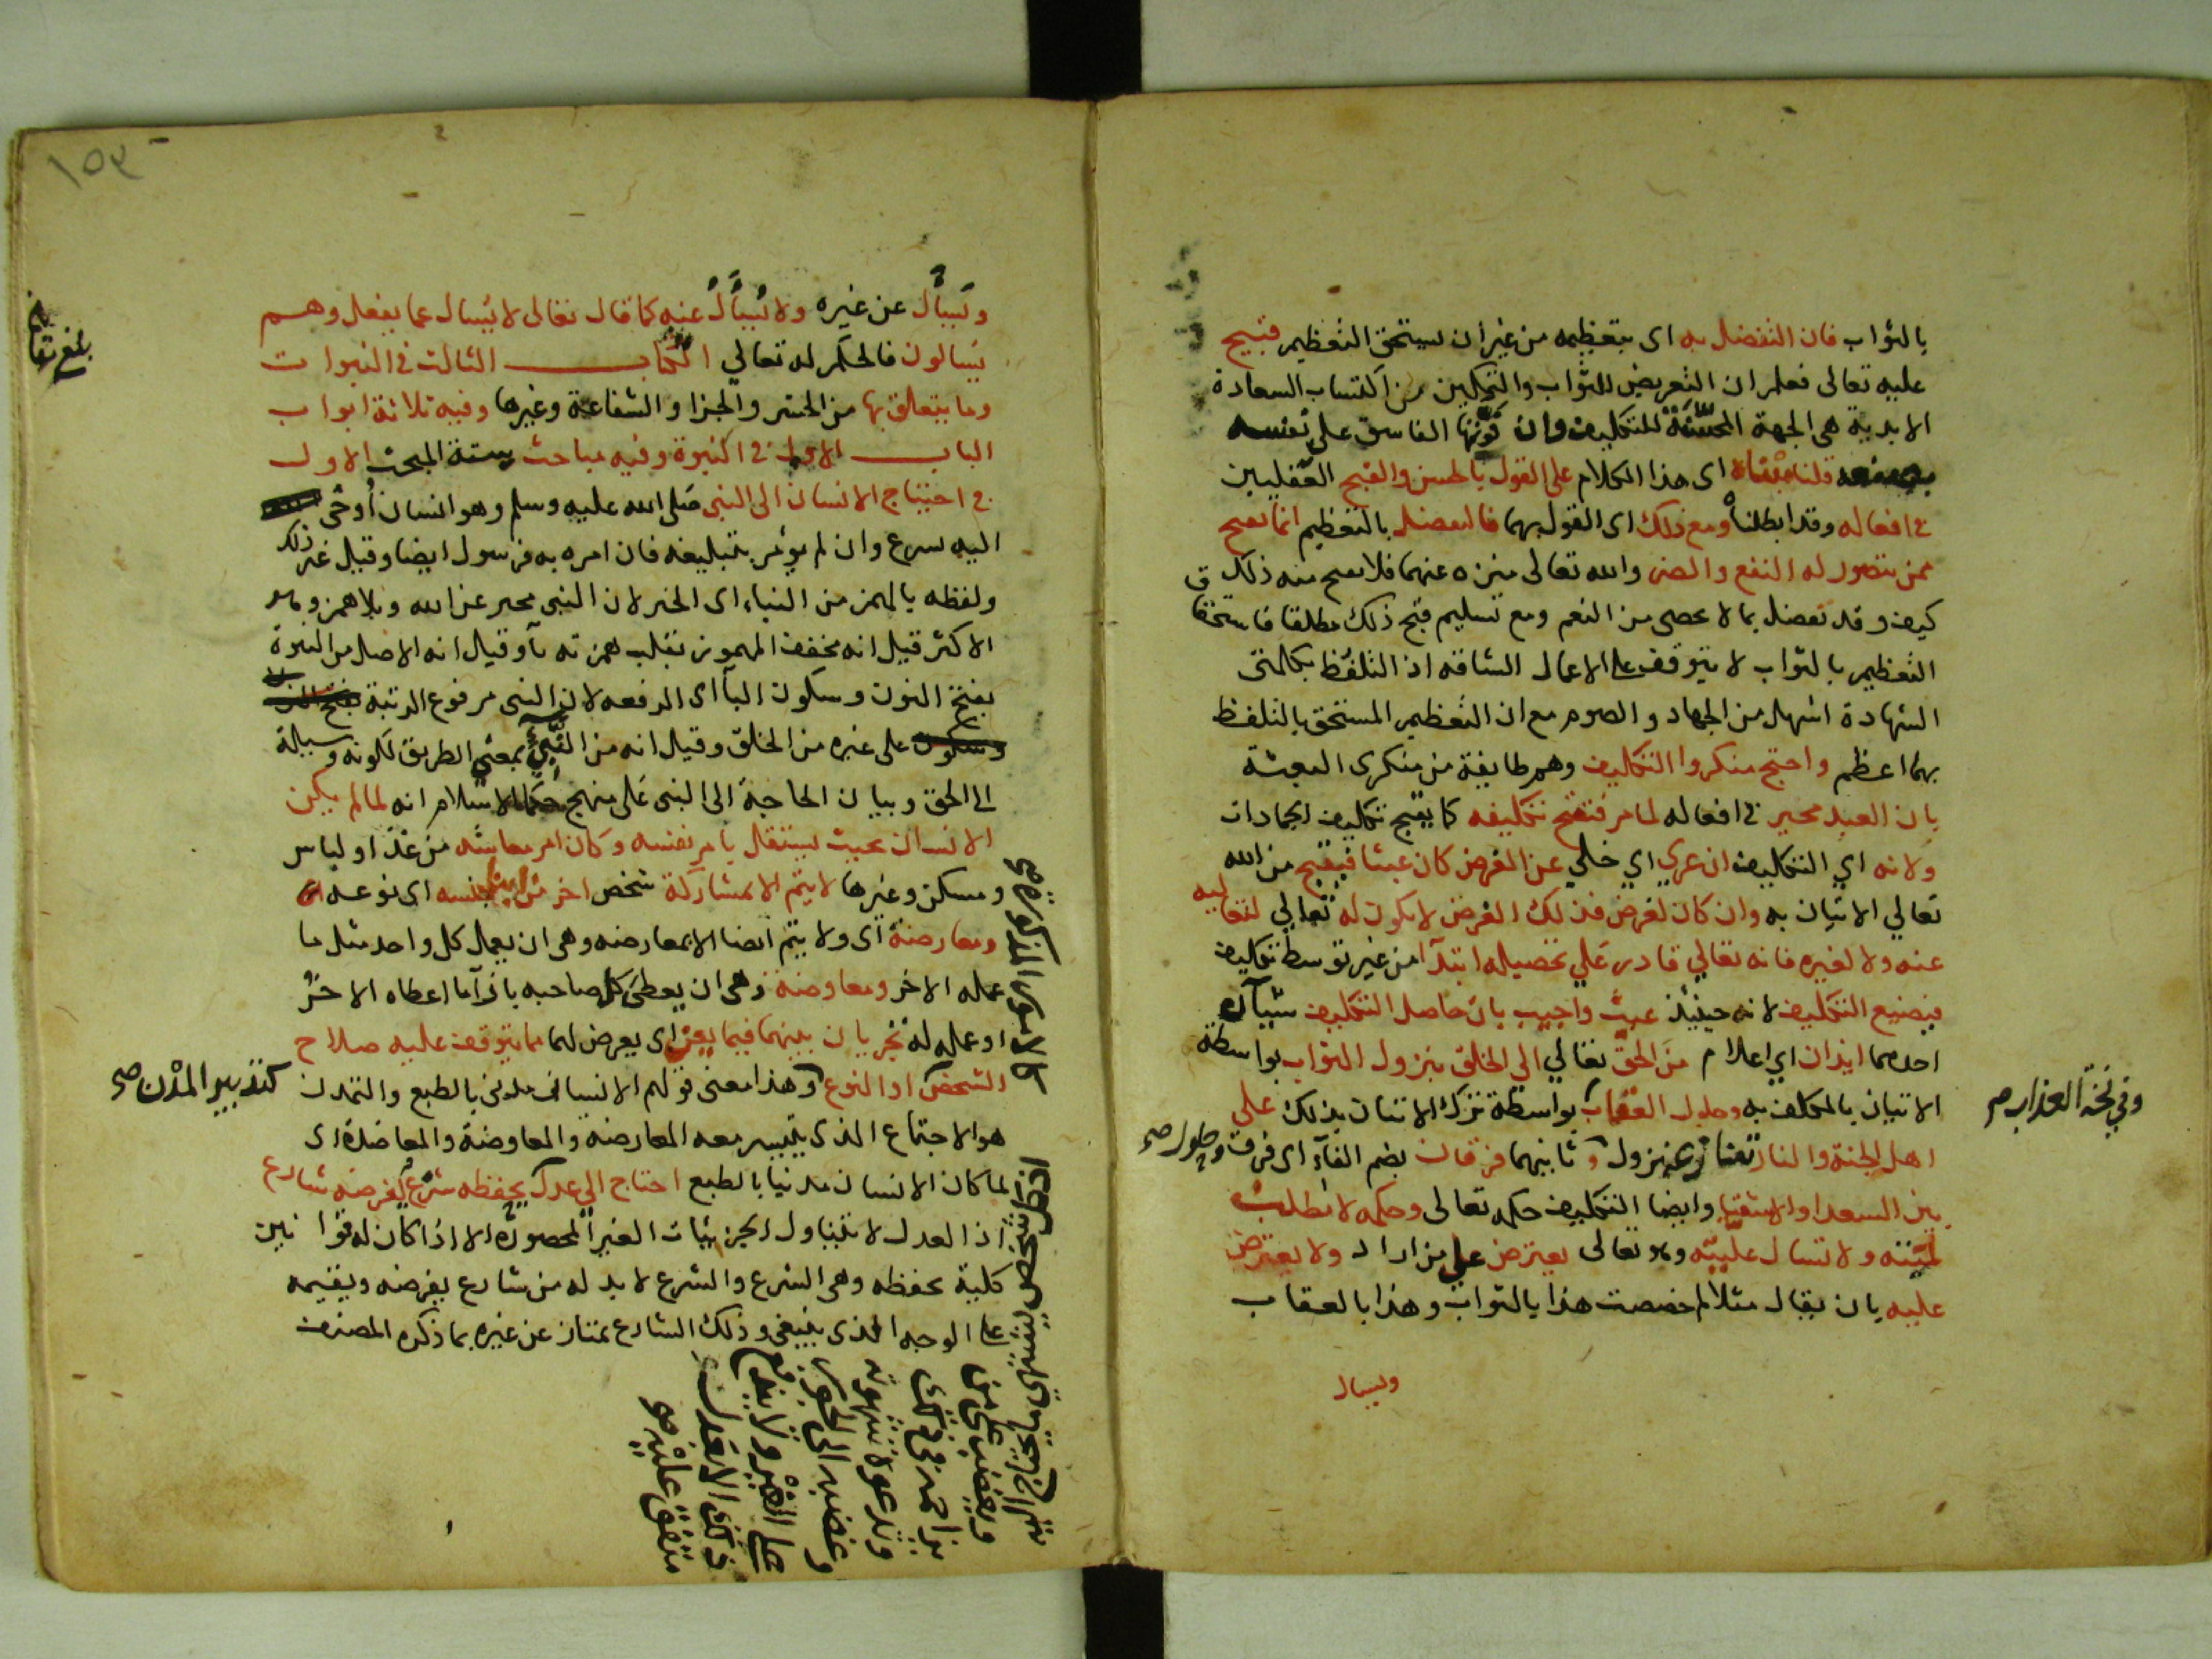 بالثواب فان التفضل به اى بتعظيمه من غير ان يستحق التعظيم قبيح
عليه تعالى فعلم ان التعريض للثواب والتمكين من اكتساب السعادة
الابدية هى الجهة المحسنة للتكليف وان فوتها الفاسق على نفسه
قلنا مبناه اى هذا الكلام على القول بالحسن والقبح العقليين
فى افعاله وقد ابطلناه ومع ذلك اى القول بهما فالتفضل بالتعظيم انما يقبح
ممن يتصور له النفع والضر والله تعالى منزه عنهما فلا يقبح منه ذلك
كيف وقد تفضل بما لا يحصى من النعم ومع تسليم قبح ذلك مطلقا فاستحقاق
التعظيم بالثواب لا يتوقف على الاعمال الشاقه اذ التلفظ بكلمتى
الشهادة اسهل من الجهاد والصوم مع ان التعظيم المستحق بالتلفظ
بهما اعظم واحتج منكروا التكليف وهم طايفة من منكرى البعثة
بان العبد مجبر فى افعاله لما مر فيقبح تكليفه كما يقبح تكليف الجمادات
ولانه اي التكليف ان عري اي خلي عن الغرض كان عبثا فيقبح من الله
تعالي الاتيان به وان كان لغرض فذلك الغرض لا يكون له تعالي لتعاليه
عنه ولا لغيره فانه تعالي قادر علي تحصيله ابتدآ من غير توسط تكليف
فيضيع التكليف لانه حينيذ عبث واجيب بان حاصل التكليف شيآن
احدهما ايذان اي اعلام من الحق تعالي الي الخلق بنزول الثواب بواسطة
الاتيان بالمكلف به وحلول العقاب بواسطة ترك الاتيان بذلك على
وفي نسخة العذاب صح
اهل الجنة والنار نزول وثانيهما فرقان بضم الفآء اى فرق
وحلول صح
بين السعدا والاشقيا وايضا التكليف حكمه تعالى وحكمه لا تطلب
لميته ولا تسال عليته وهو تعالى يعترض على من اراد ولا يعترض
عليه بان يقال مثلا لم خصصت هذا بالثواب وهذا بالعقاب
ويسال
١٥٣
ويسأل عن غيره ولا يسأل عنه كما قال تعالى لا يسال عما يفعل وهم
يسالون فالحكم له تعالي الكتاب الثالث فى النبوات
وما يتعلق بها من الحشر والجزا والشفاعة وغيرها وفيه ثلاثة ابواب
الباب الاول فى النبوة وفيه مباحث ستة المبحث الاول
فى احتياج الانسان الى النبى صلى الله عليه وسلم وهو انسان أوحى
اليه بشرع وان لم يؤمر بتبليغه فان امره به فرسول ايضا وقيل غير ذلك
ولفظه بالهمز من النباء اى الخبر لان النبى مخبر عن الله وبلا همز وهو
الاكثر قيل انه مخفف المهموز بقلب همزته يآ وقيل انه الاصل من النبوة
بفتح النون وسكون البآ اى الرفعه لان النبى مرفوع الرتبة
على غيره من الخلق وقيل انه من النبىء بمعنى الطريق لكونه وسيلة
الى الحق وبيان الحاجة الى النبى على منهج حكما الاسلام انه لما لم يكن
الانسان بحيث يستقل بامر نفسه وكان امر معاشه من غذا ولباس
ومسكن وغيرها لا يتم الا بمشاركة شخص اخر من ابنا جنسه اى نوعه
الامور المذكورة صح
ومعارضة اى ولا يتم ايضا الا بمعارضه وهى ان يعمل كل واحد مثل ما
عمله الاخر ومعاوضة وهى ان يعطى كل صاحبه بازآ ما اعطاه الاخر
او عمله له تجريان بينهما فيما يعن اى يعرض لهما مما يتوقف عليه صلاح
الشخص او النوع وهذا معنى قولهم الانسان مدنى بالطبع والتمدن
كتدبير المدن صح
هو الاجتماع الذى يتيسر معه المعارضه والمعاوضة والمعاضدة اى
لما كان الانسان مدنيا بالطبع احتاج الي عدل يحفظه شرع يفرضه شارع
اذ العدل لا يتناول الجزييات الغير المحصورة الا اذا كان له قوانين
كلية تحفظه وهى الشرع والشرع لا بد له من شارع يفرضه ويقيمه
على الوجه الذى ينبغى وذلك الشارع يمتاز عن غيره بما ذكره المصنف
ويغضب على من
يزاحمه فى ذلك
وتدعوه شهوته
وغضبه الى الجور
على الغير ولا يندفع
ذلك الا بعدل
متفق عليه صح